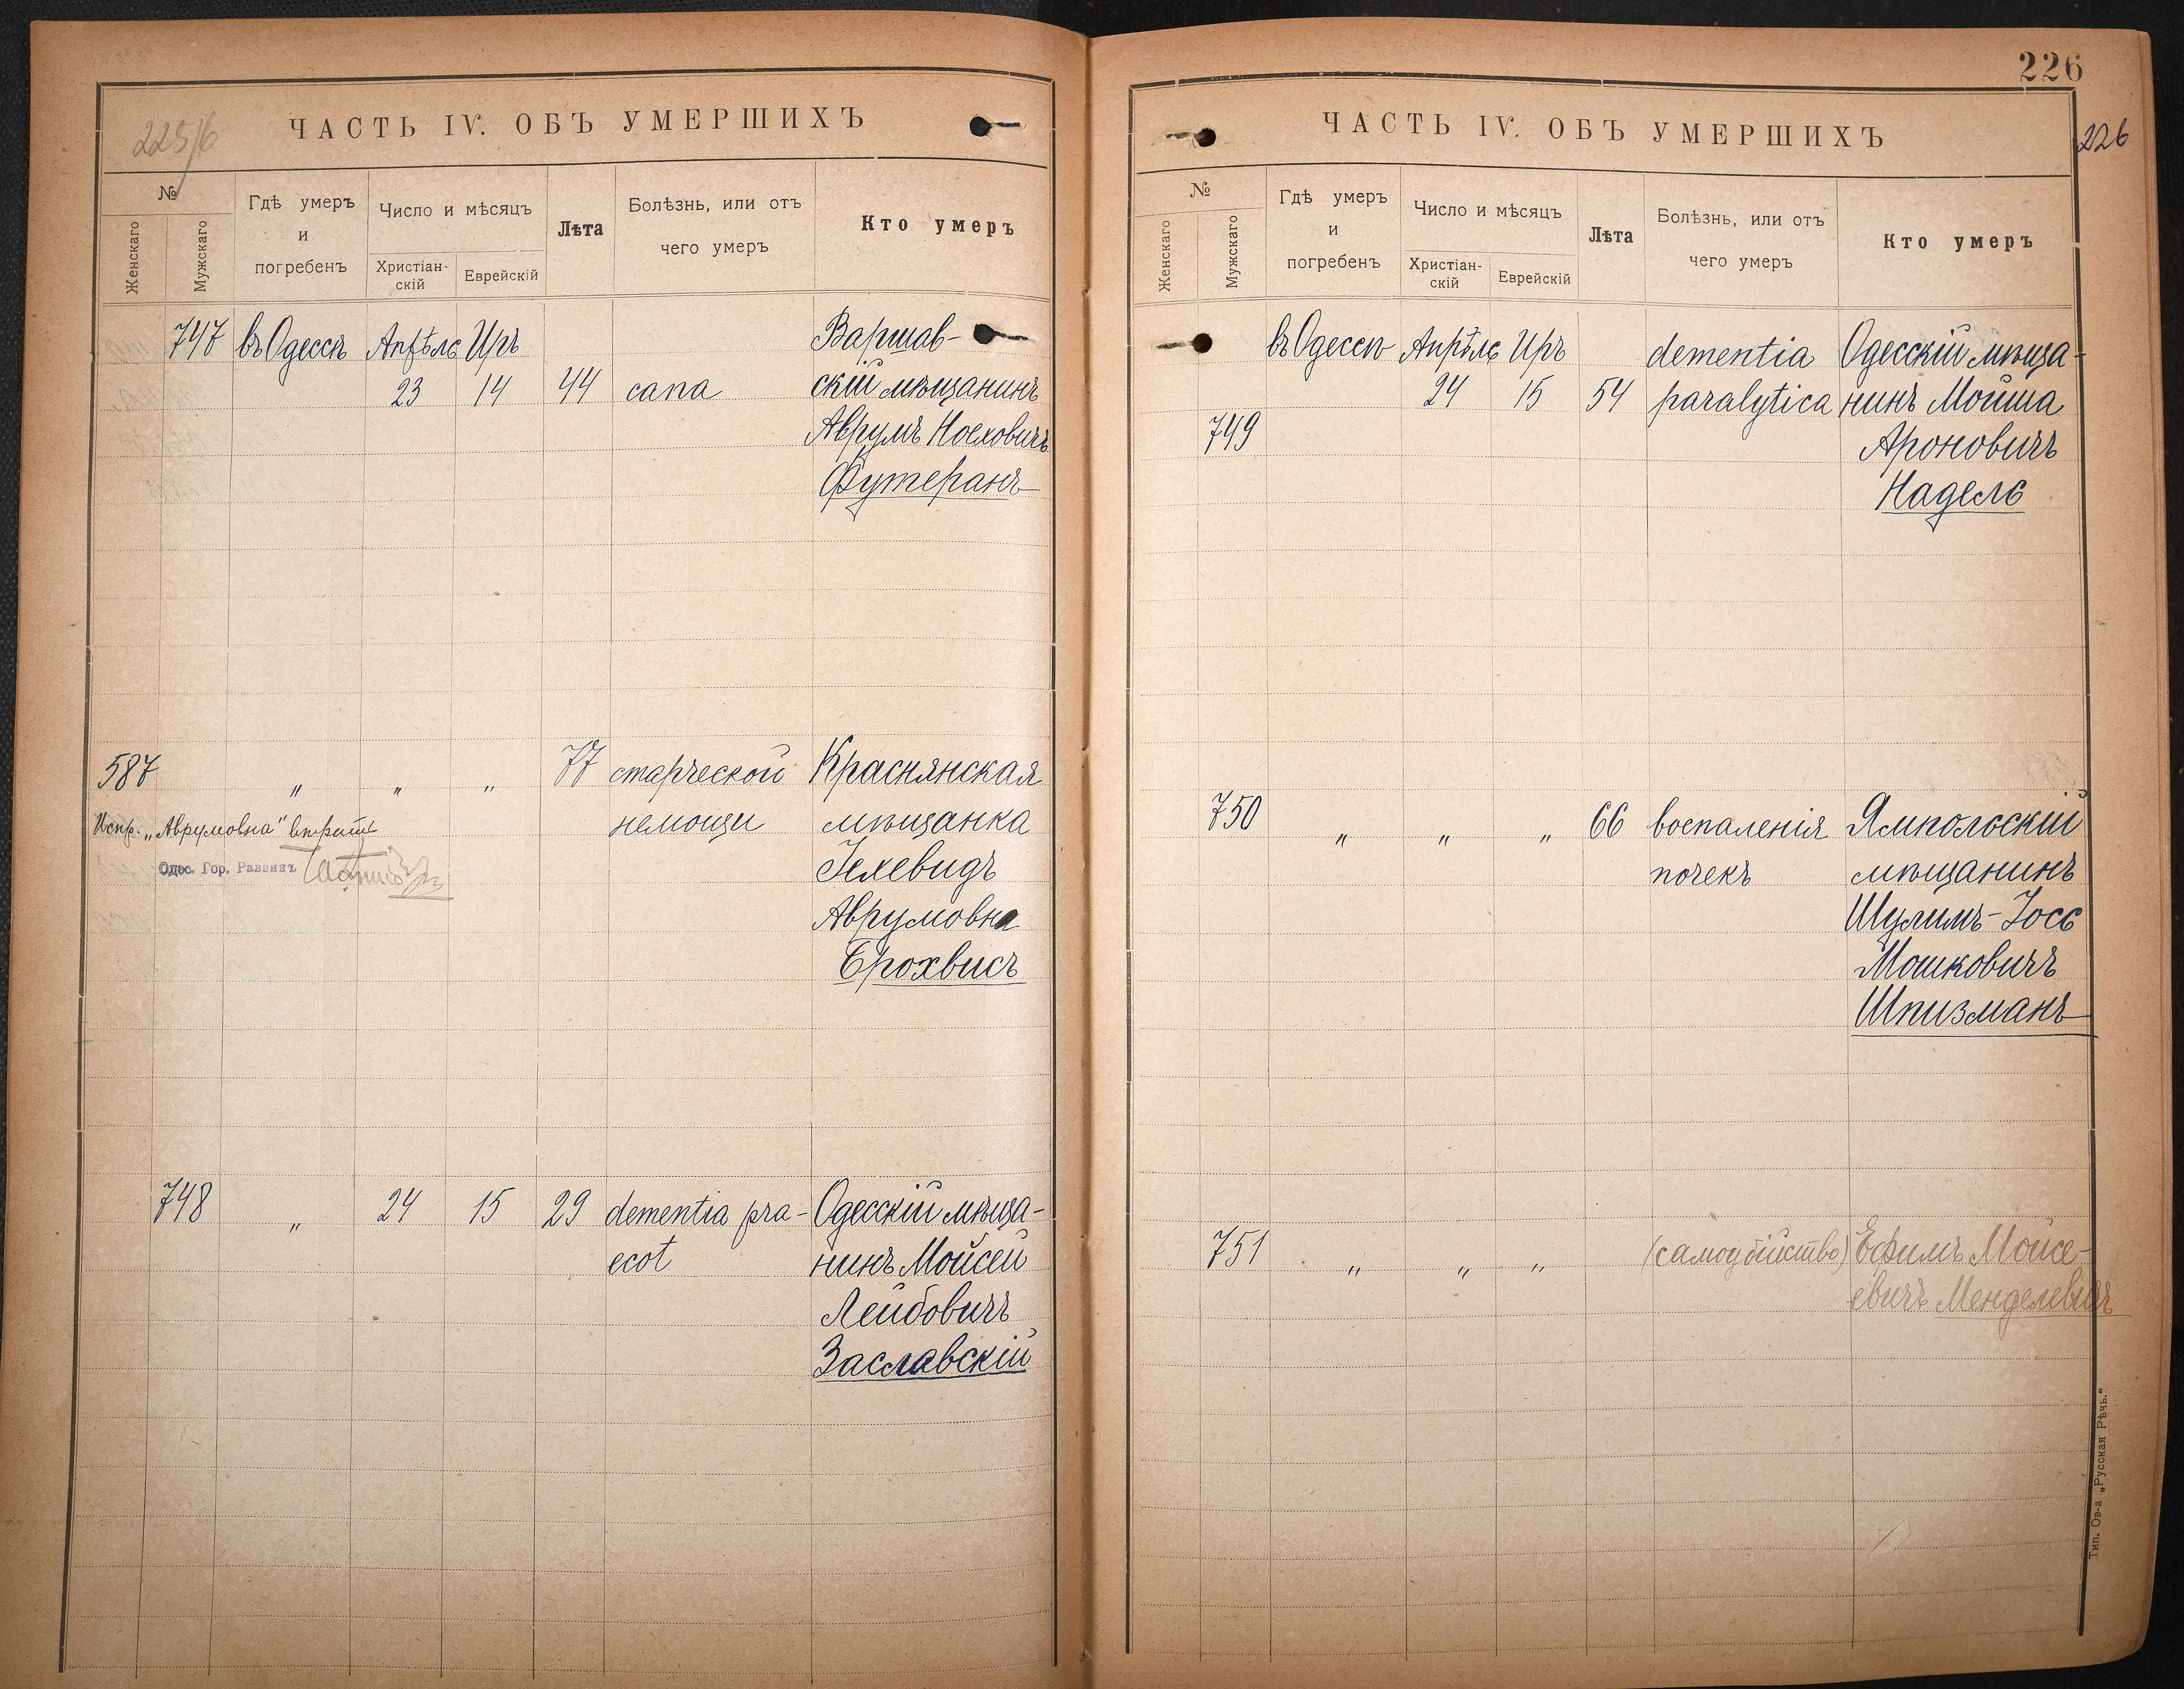 225/6
ЧАСТЬ IV. ОБЪ УМЕРШИХЪ
№
Женскаго
Мужскаго
Гдѣ умеръ
и
погребенъ
Число и мѣсяцъ
Христіан-
скій
Еврейскій
Лѣта
Болѣзнь, или отъ
чего умеръ
Кто умеръ
747 въ Одессѣ Апрѣль Иръ Варшав-
23 14 44 сапа скій мѣщанинъ
Аврумъ Ноеховичъ
Футеранъ
587 " " " 77 старческой Краснянская
немощи мѣщанка
Испр. „Аврумовна"
Одес. Гор. Раввинъ
Гехевидъ
Аврумовна
Брохвисъ
748 " 24 15 29 dementia pra- Одесскій мѣща-
ecot нинъ Мойсей
Лейбовичъ
Заславскій
226
226
ЧАСТЬ IV. ОБЪ УМЕРШИХЪ
№
Женскаго
Мужскаго
Гдѣ умеръ
и
погребенъ
Число и мѣсяцъ
Христіан-
скій
Еврейскій
Лѣта
Болѣзнь, или отъ
чего умеръ
Кто умеръ
въ Одессѣ Апрѣль Иръ dementia Одесскій мѣща-
24 15 54 paralytica нинъ Мойша
749 Ароновичъ
Надель
750 " " " 66 воспаленія Ямпольскій
почекъ мѣщанинъ
Шулимъ-Іось
Мошковичъ
Шпизманъ
751 " " " (самоубійство) Ефимъ Мойсе-
евичъ Менделевичъ
Тип. Ов-а „Русская Рѣчь."